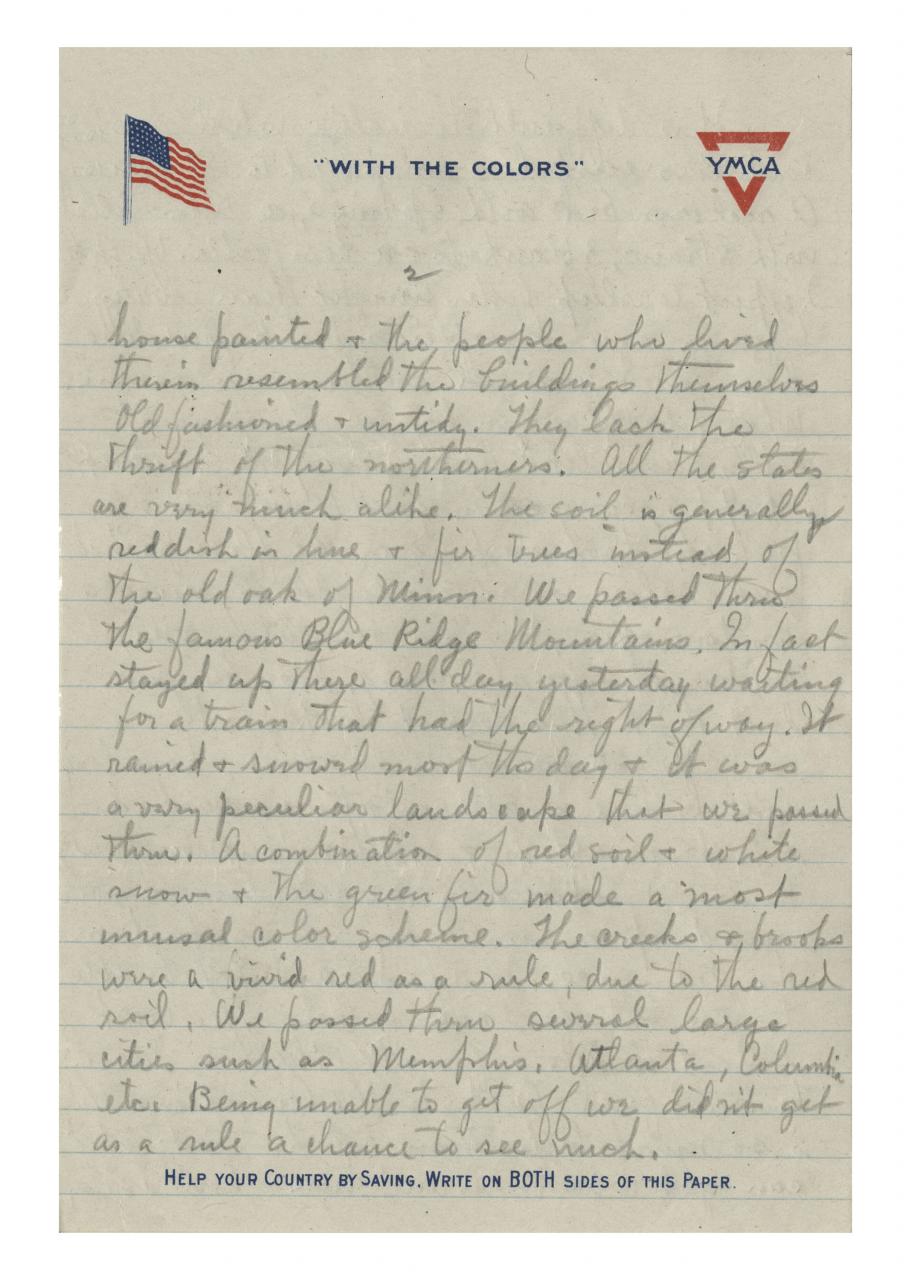 "WITH THE COLORS"
YMCA
2
house painted & the people who lived
therein resembled the buildings themselves
Old fashioned & untidy. They lack the
thrift of the northerners. All the states
are very much alike. The soil is generally
reddish in hue & fir trees instead of
the old oak of Minn. We passed thru
the famous Blue Ridge Mountains. In fact
stayed up there all day yesterday waiting
for a train that had the right of way. It
rained & snowed most ths day & it was
a very peculiar landscape that we passed
thru. A combination of red soil & white
snow & the green fir made a most
unusal color scheme. The creeks & brooks
were a vivid red as a rule, due to the red
soil. We passed thru several large
cities such as Memphis, Atlanta, Columbia
etc. Being unable to get off we didn't get
as a rule a chance to see much.
HELP YOUR COUNTRY BY SAVING. WRITE ON BOTH SIDES OF THIS PAPER.